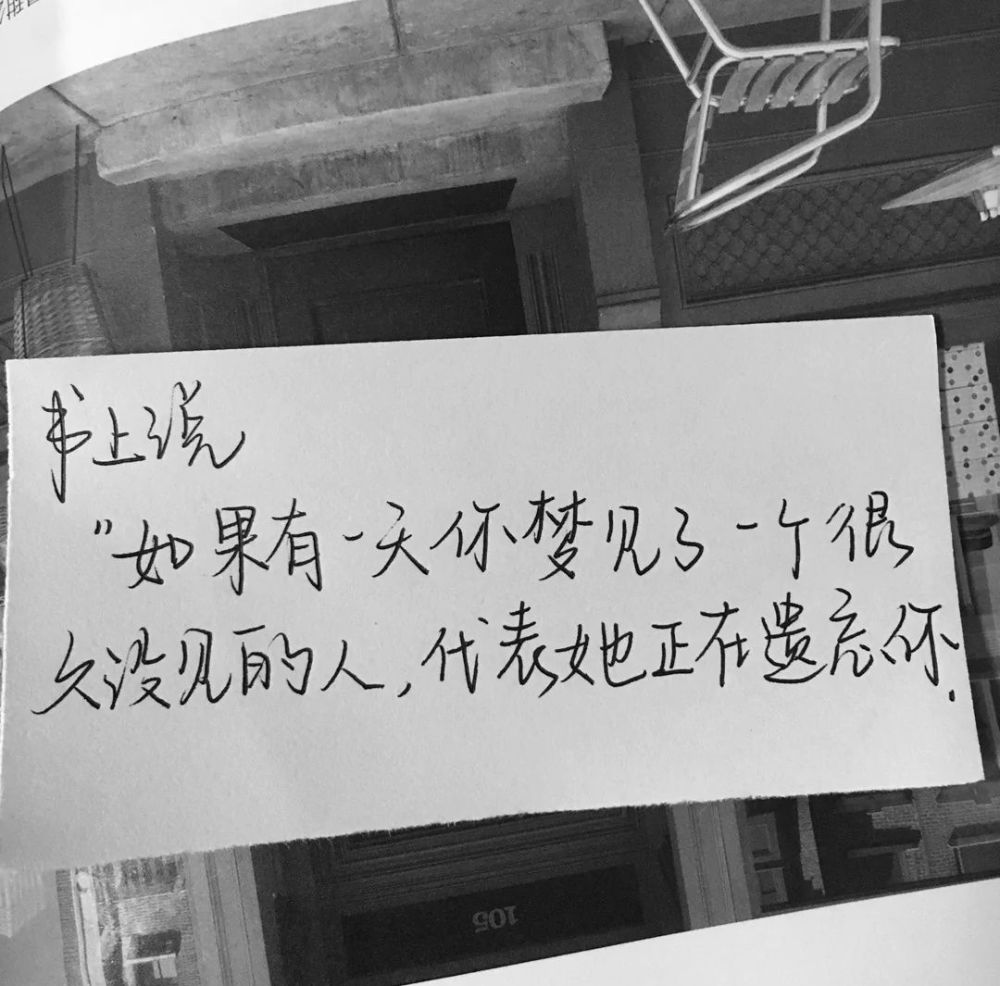 书上说
"如果有一天你梦见了一个很
久没见的人,代表她正在遗忘你.
105